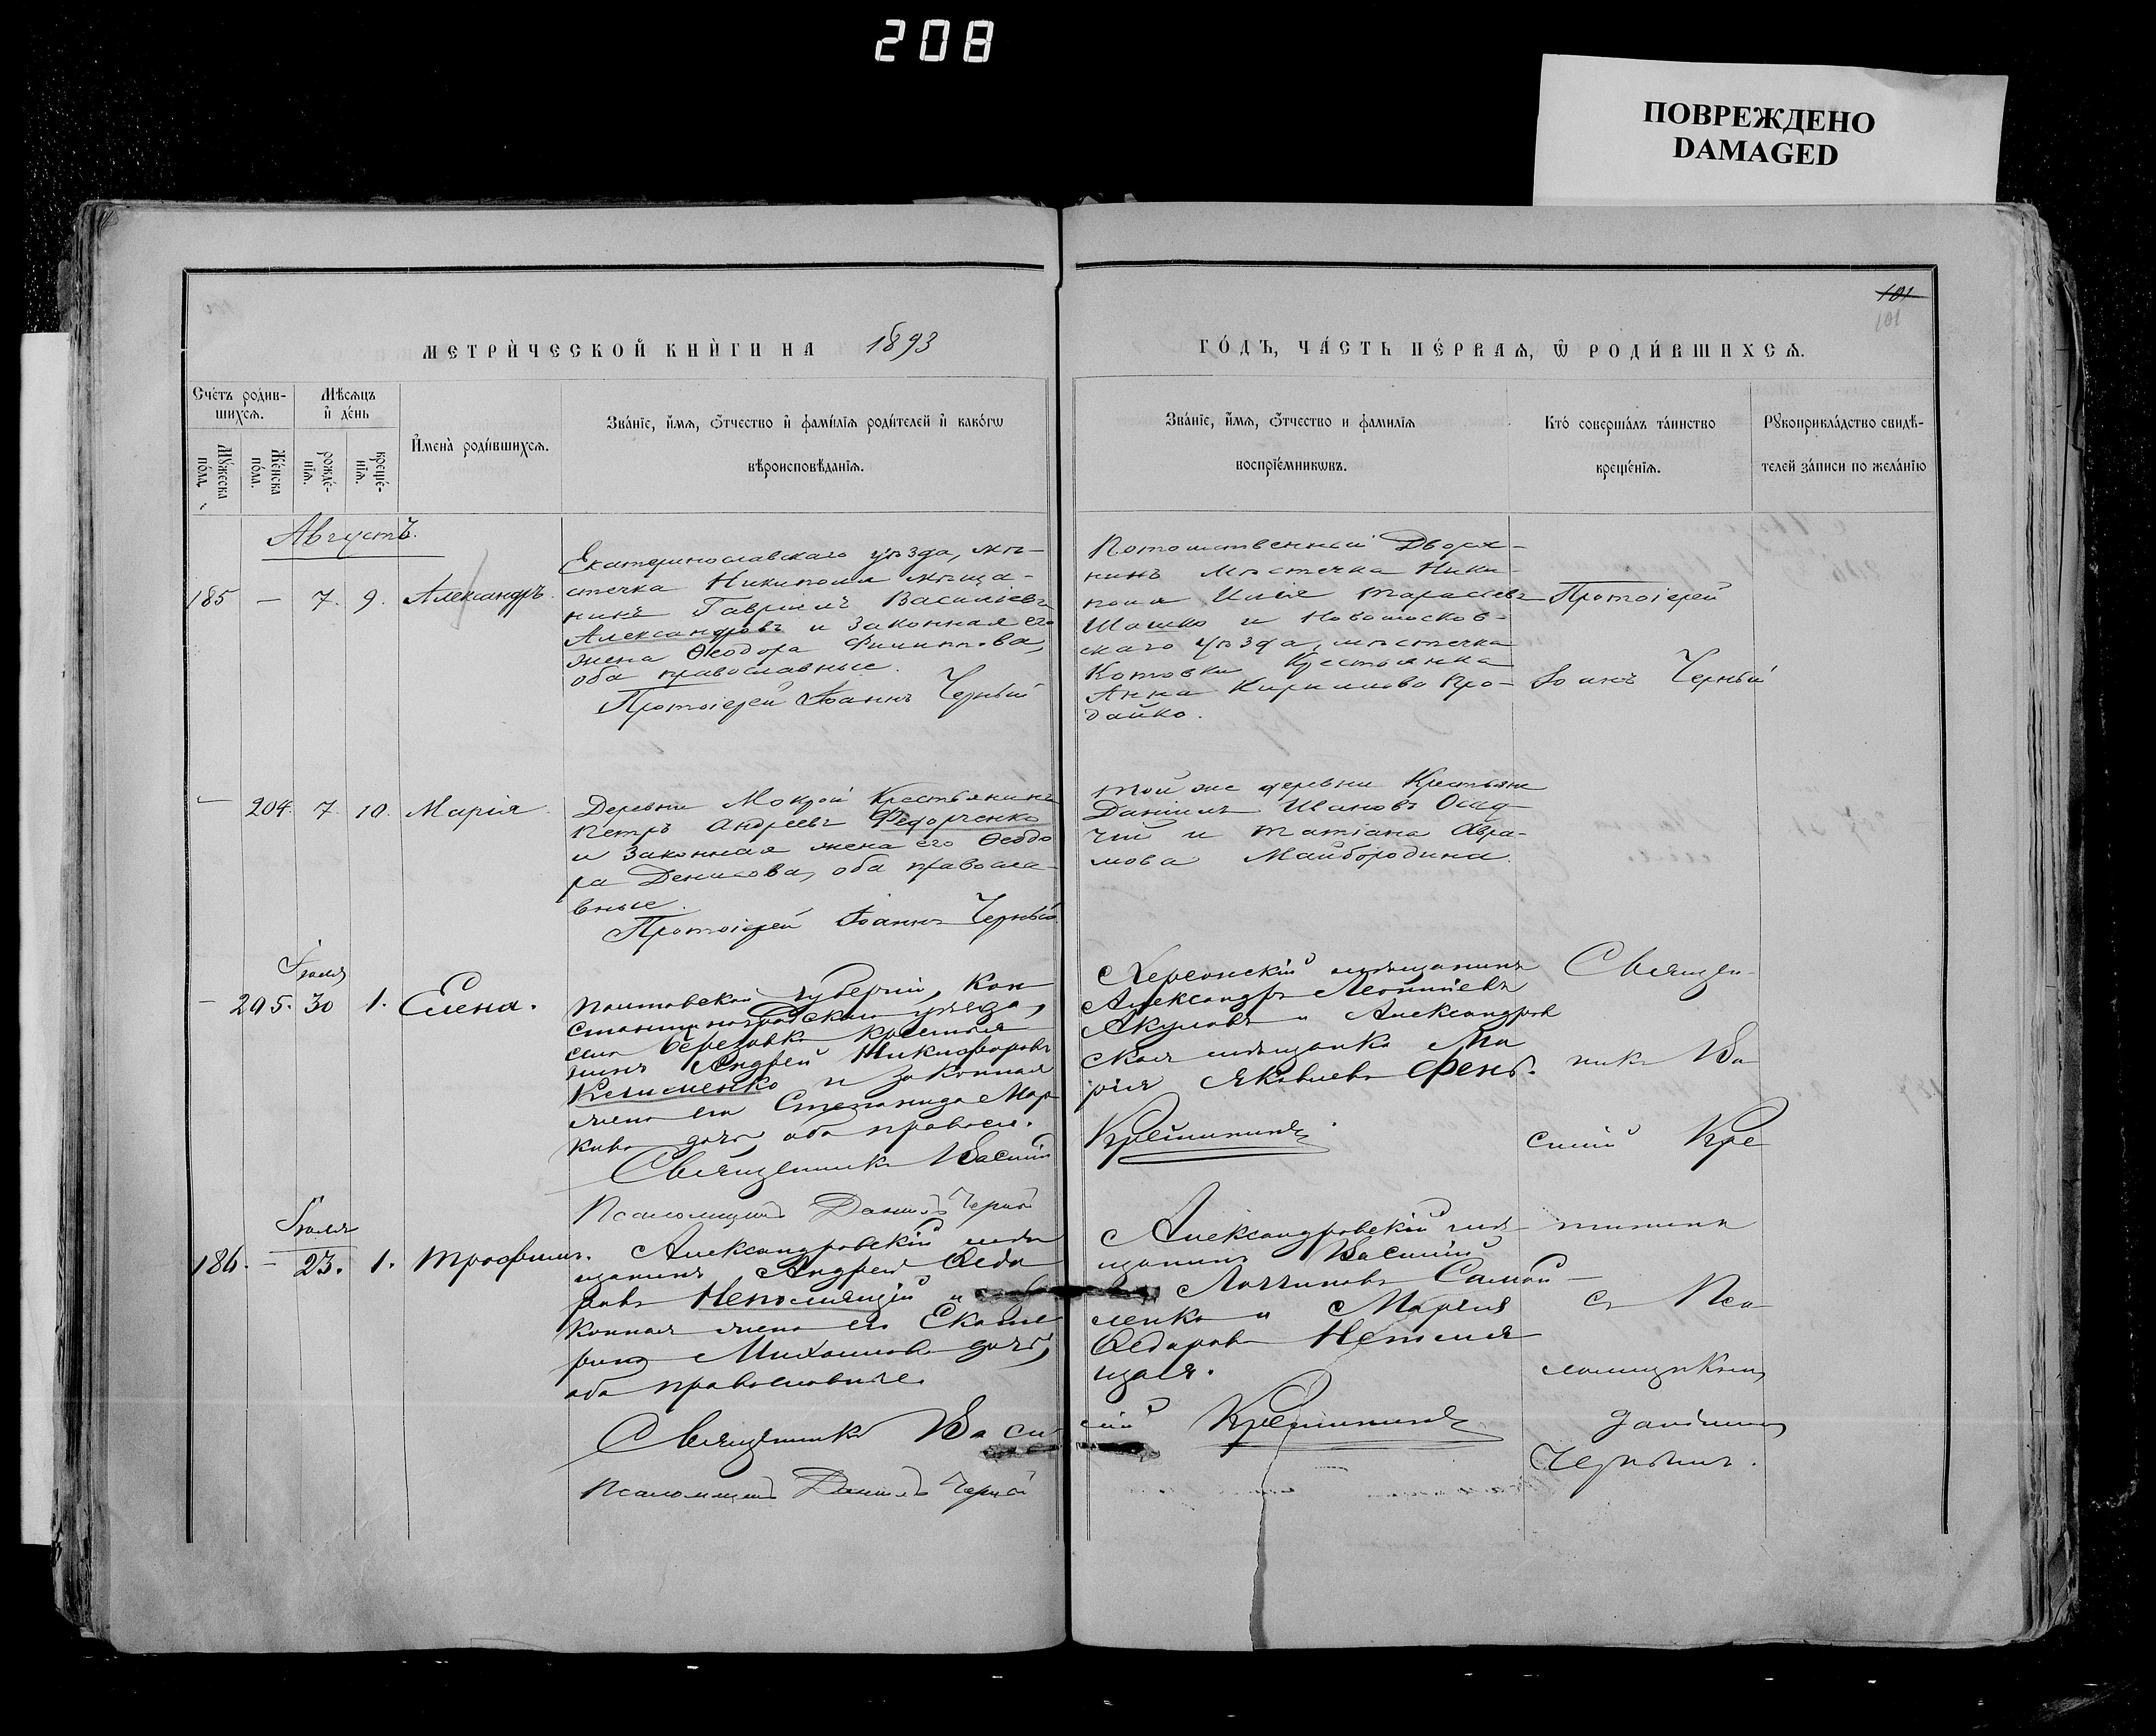 208
ПОВРЕЖДЕНО
DAMAGED
101
101
МЕТРИ́ЧЕСКОЙ КНИ́ГИ НА 1893
ГО́ДЪ, ЧА́СТЬ ПЕ́РВАѦ, Ѿ РОДИ́ВШИХСѦ.
Сче́тъ роди́в-
шихсѧ.
Мѣ́сѧцъ
и҆ де́нь
Мꙋ́жеска
по́ла.
Же́нска
по́ла.
рожде́-
нїѧ.
креще́-
нїѧ.
И҆мена̀ роди́вшихсѧ.
Зва́нїе, и҆́мѧ, ѻ҆́тчество и҆ фами́лїѧ роди́телей и҆ како́гѡ
вѣроисповѣ́данїѧ.
Зва́нїе, и҆́мѧ, ѻ҆́тчество и фами́лїѧ
воспрїе́мникѡвъ.
Кто́ соверша́лъ та́инство
креще́нїѧ.
Рꙋкоприкла́дство свидѣ́-
телей за́писи по жела́нїю
Августъ.
185 — 7. 9. Александръ.
Екатеринославскаго уѣзда, мѣ-
стечка Никополя мѣща-
нинъ Гавріилъ Васильевъ
Александровъ и законная его
жена Ѳеодора Филиппова,
оба православные.
Протоіерей Іоаннъ Черный
Потомственный Дворя-
нинъ Мѣстечка Нико-
поля Илья Тарасіевъ
Шашко и Новомосков-
скаго уѣзда, мѣстечка
Котовки Крестьянка
Анна Кириллова Про-
дайко.
Протоіерей
Іоаннъ Черный
— 204. 7. 10. Марія.
Деревни Мокрой Крестьянинъ
Петръ Андреевъ Федорченко
и законная жена его Ѳеодо
ра Денисова, оба правосла-
вные.
Протоіерей Іоаннъ Черный.
Той же деревни Крестьяне
Даніилъ Ивановъ Осад-
чій и Татіана Авра-
мова Майбородина.
Іюля
— 205. 30 1. Елена.
Полтавской губерніи, Кон
стантиноградскаго уѣзда,
села Березовки крестья
нинъ Андрей Никифоровъ
и законная
жена его Степанида Мар
кова дочь, оба правосл.
Священникъ Василій
Псаломщикъ Даніилъ Черный
Херсонскій мѣщанинъ
Александръ Леонтіевъ
Акуловъ и Александров
ская мѣщанка Ма
рія Яковлева Фень.
Крещанинъ
Священ-
никъ Ва
силій Кре
Іюля
186. — 23. 1. Трофимъ.
Александровскій мѣ
щанинъ Андрей Ѳедо
ровъ Непомнящій и за
конная жена его Екате
рина Михаилова дочь,
оба православные.
Священникъ Васи
Псаломщикъ Даніилъ Черный
Александровскій мѣ
щанинъ Василій
Самой-
ленко и Марія
Ѳедорова Непомня
щая.
лій
съ Пса-
ломщикомъ
Даніиломъ
Чернымъ.